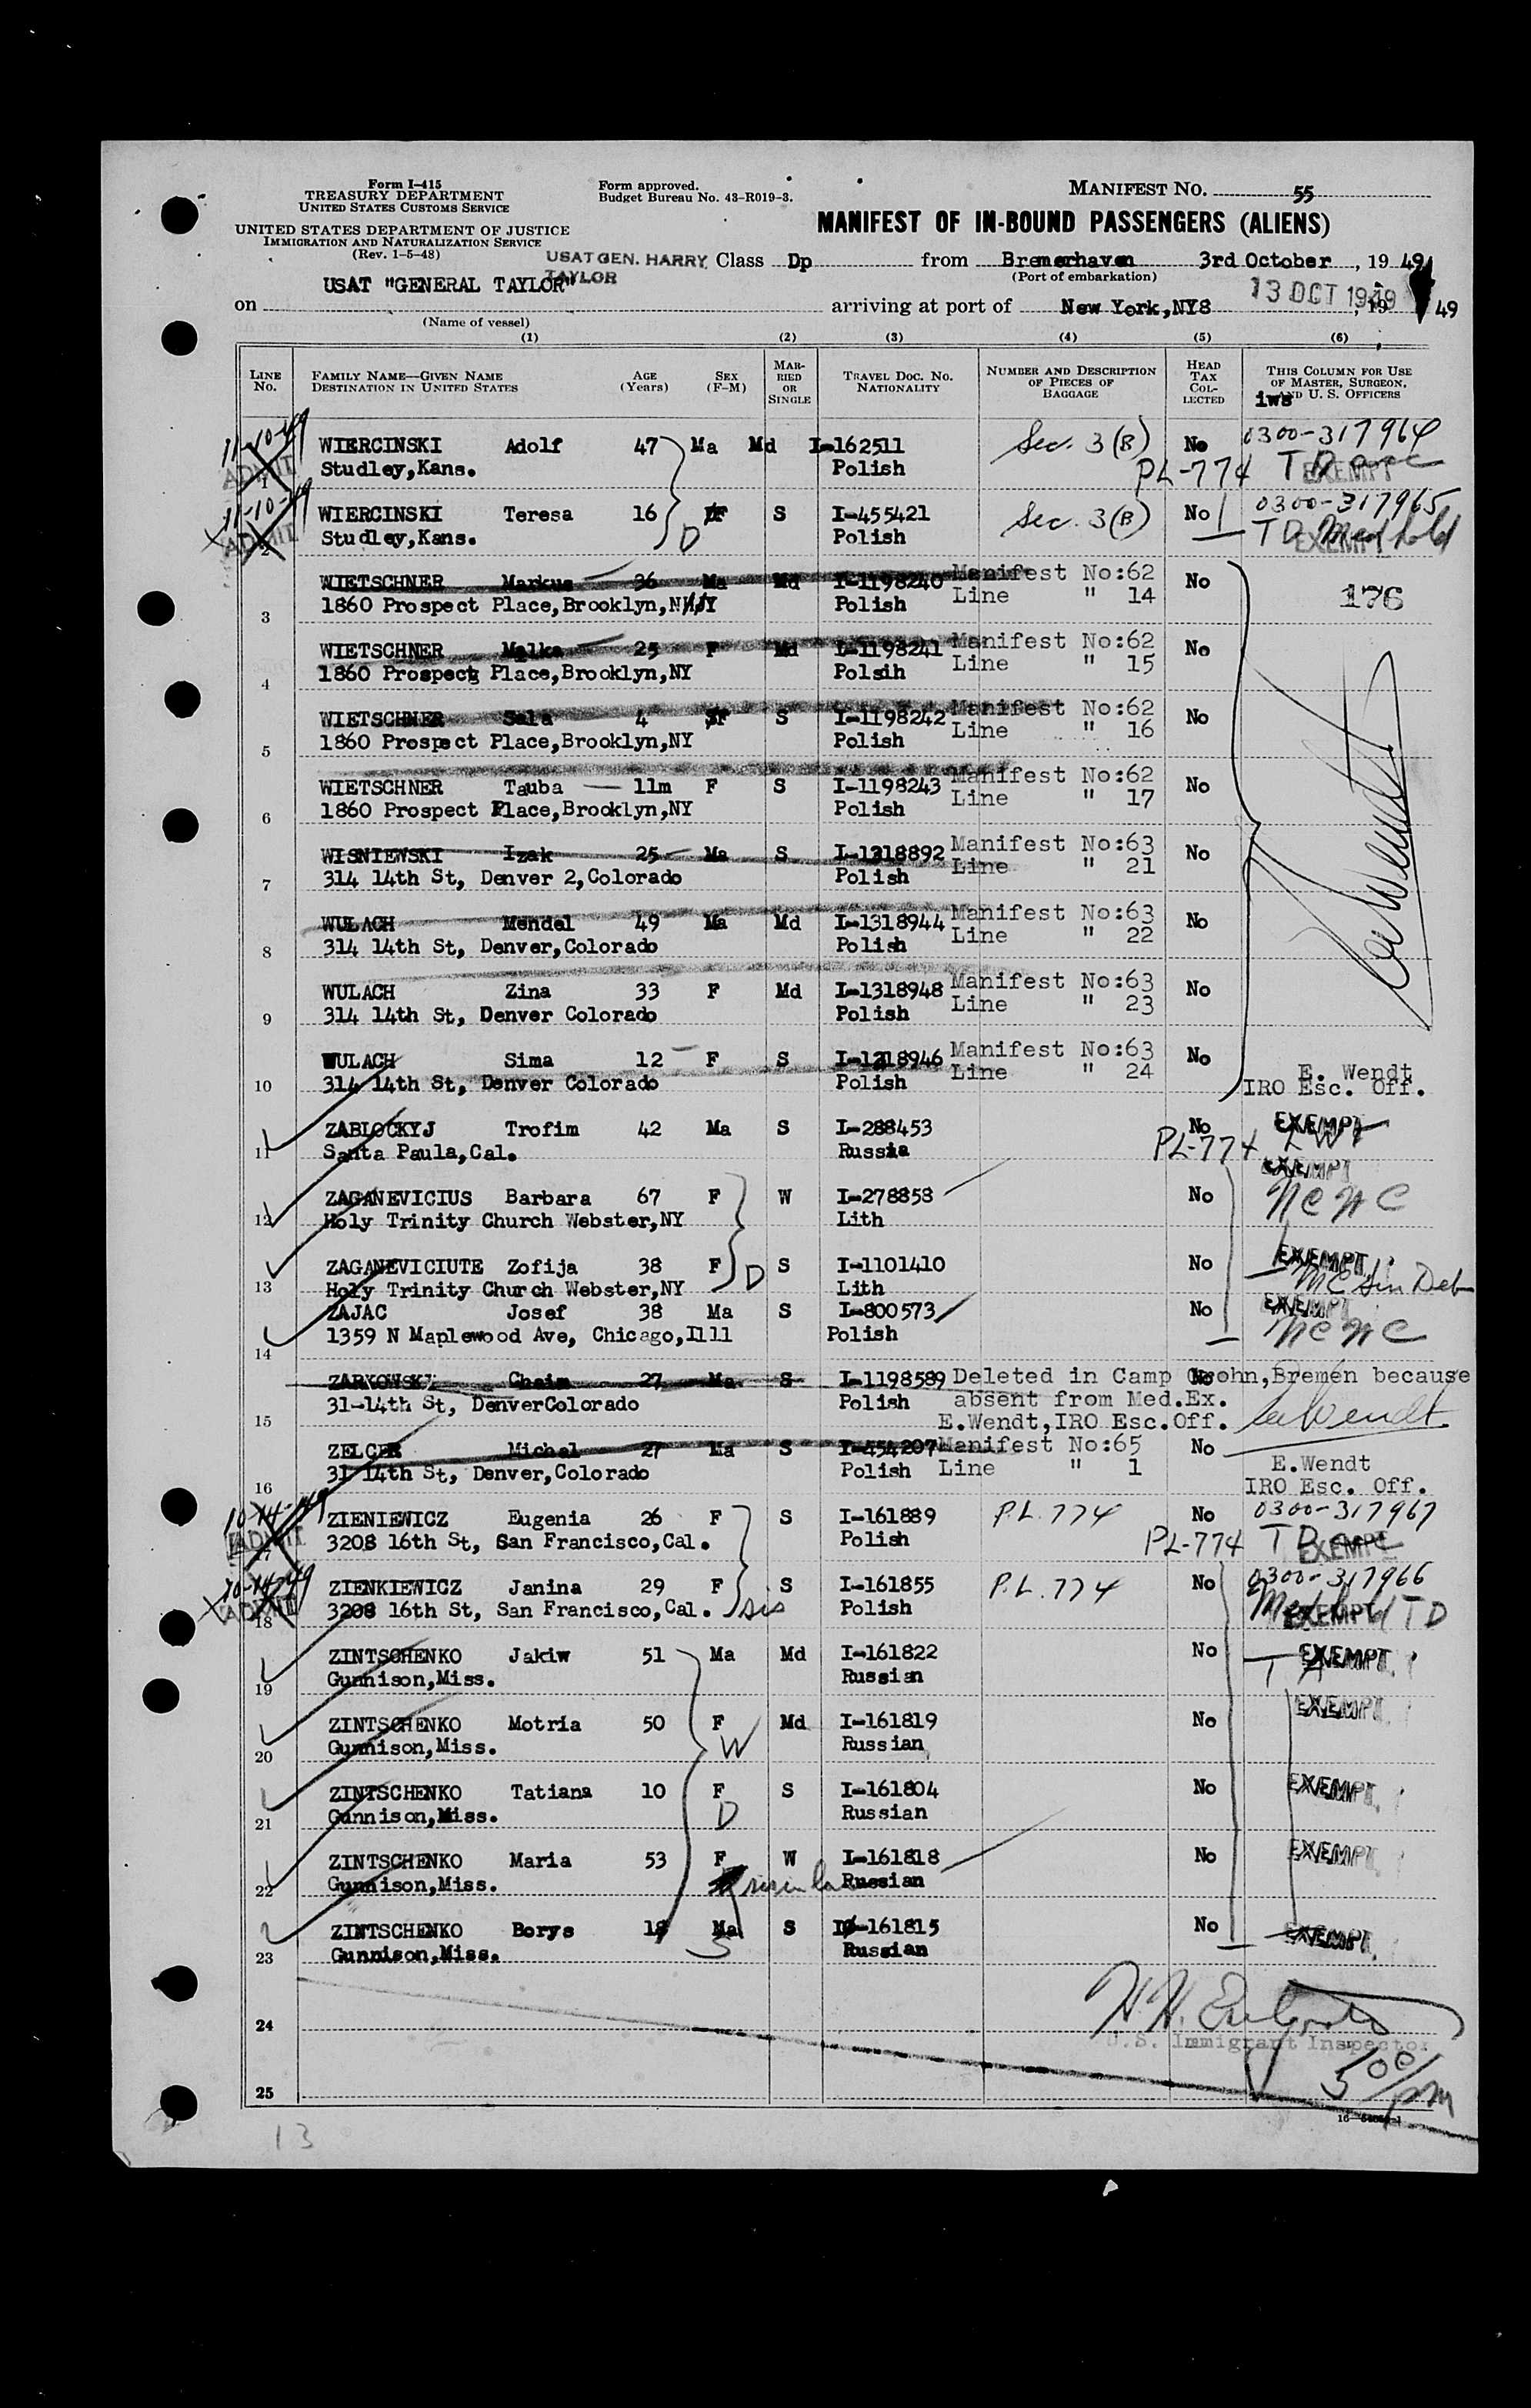 Form I-415
TREASURY DEPARTMENT
UNITED STATES CUSTOMS SERVICE
UNITED STATES DEPARTMENT OF JUSTICE
IMMIGRATION AND NATURALIZATION SERVICE
(Rev. 1-5-48)
Form approved.
Budget Bureau No. 43-R019-3.
MANIFEST NO. 55
MANIFEST OF IN-BOUND PASSENGERS (ALIENS)
USAT GEN. HARRY TAYLOR
Class Dp from Bremerhaven 3rd October, 19 49
(Port of embarkation)
on USAT "GENERAL TAYLOR" arriving at port of New York,NY8 13 OCT 1949, 19 49
(Name of vessel)
(1) (2) (3) (4) (5) (6)
LINE NO. FAMILY NAME—GIVEN NAME DESTINATION IN UNITED STATES AGE (Years) SEX (F-M) MARRIED OR SINGLE TRAVEL DOC. NO. NATIONALITY NUMBER AND DESCRIPTION OF PIECES OF BAGGAGE HEAD TAX COLLECTED THIS COLUMN FOR USE OF MASTER, SURGEON, AND U. S. OFFICERS
iws
11-10-49 WIERCINSKI Adolf 47 Ma Md I-162511 Sec. 3(B) No 0300-317964
ADMIT 1 Studley,Kans. Polish PL-774 TD EXEMPT
11-10-49 WIERCINSKI Teresa 16 F S I-455421 Sec. 3(B) No 0300-317965
ADMIT 2 Studley,Kans. D Polish TD Med hold EXEMPT
WIETSCHNER Markus 36 Ma Md I-1198240 Manifest No:62 No 176
3 1860 Prospect Place,Brooklyn,NY Polish Line " 14
WIETSCHNER Malka 25 F Md I-1198241 Manifest No:62 No
4 1860 Prospect Place,Brooklyn,NY Polsih Line " 15
WIETSCHNER Sala 4 F S I-1198242 Manifest No:62 No
5 1860 Prospect Place,Brooklyn,NY Polish Line " 16
WIETSCHNER Tauba 11m F S I-1198243 Manifest No:62 No
6 1860 Prospect Place,Brooklyn,NY Polish Line " 17
WISNIEWSKI Izak 25 Ma S I-1318892 Manifest No:63 No
7 314 14th St, Denver 2,Colorado Polish Line " 21
WULACH Mendel 49 Ma Md I-1318944 Manifest No:63 No
8 314 14th St, Denver,Colorado Polish Line " 22
WULACH Zina 33 F Md I-1318948 Manifest No:63 No
9 314 14th St, Denver Colorado Polish Line " 23
WULACH Sima 12 F S I-1318946 Manifest No:63 No E. Wendt
10 314 14th St, Denver Colorado Polish Line " 24 IRO Esc. Off.
ZABLOCKYJ Trofim 42 Ma S I-288453 No EXEMPT
11 Santa Paula,Cal. Russia PL-774
EXEMPT
ZAGANEVICIUS Barbara 67 F W I-278858 No NCNC
12 Holy Trinity Church Webster,NY Lith
ZAGANEVICIUTE Zofija 38 F D S I-1101410 No EXEMPT
13 Holy Trinity Church Webster,NY Lith
ZAJAC Josef 38 Ma S I-800573 No EXEMPT
14 1359 N Maplewood Ave, Chicago,Illl Polish NCNC
ZARKOWSKI Chaim 27 Ma S I-1198589 Deleted in Camp Grohn,Bremen because No
15 31-14th St, DenverColorado Polish absent from Med.Ex.
E.Wendt,IRO Esc.Off. Wendt
ZELCER Michal 27 Ma S I-454207 Manifest No:65 No E.Wendt
16 31 14th St, Denver,Colorado Polish Line " 1 IRO Esc. Off.
10-14-49 ZIENIEWICZ Eugenia 26 F S I-161889 P.L. 774 No 0300-317967
ADMIT 17 3208 16th St, San Francisco,Cal. Polish PL-774 TD EXEMPT
10-14-49 ZIENKIEWICZ Janina 29 F S I-161855 P.L. 774 No 0300-317966
ADMIT 18 3208 16th St, San Francisco,Cal. sis Polish Med hold TD EXEMPT
ZINTSCHENKO Jakiw 51 Ma Md I-161822 No EXEMPT
19 Gunnison,Miss. Russian
ZINTSCHENKO Motria 50 F Md I-161819 No EXEMPT
20 Gunnison,Miss. W Russian
ZINTSCHENKO Tatiana 10 F S I-161804 No EXEMPT
21 Gunnison,Miss. D Russian
ZINTSCHENKO Maria 53 F W I-161818 No EXEMPT
22 Gunnison,Miss. Russian
ZINTSCHENKO Borys 18 Ma S I-161815 No EXEMPT
23 Gunnison,Miss. S Russian
24
U.S. Immigrant Inspector
25 5 00/pm
13